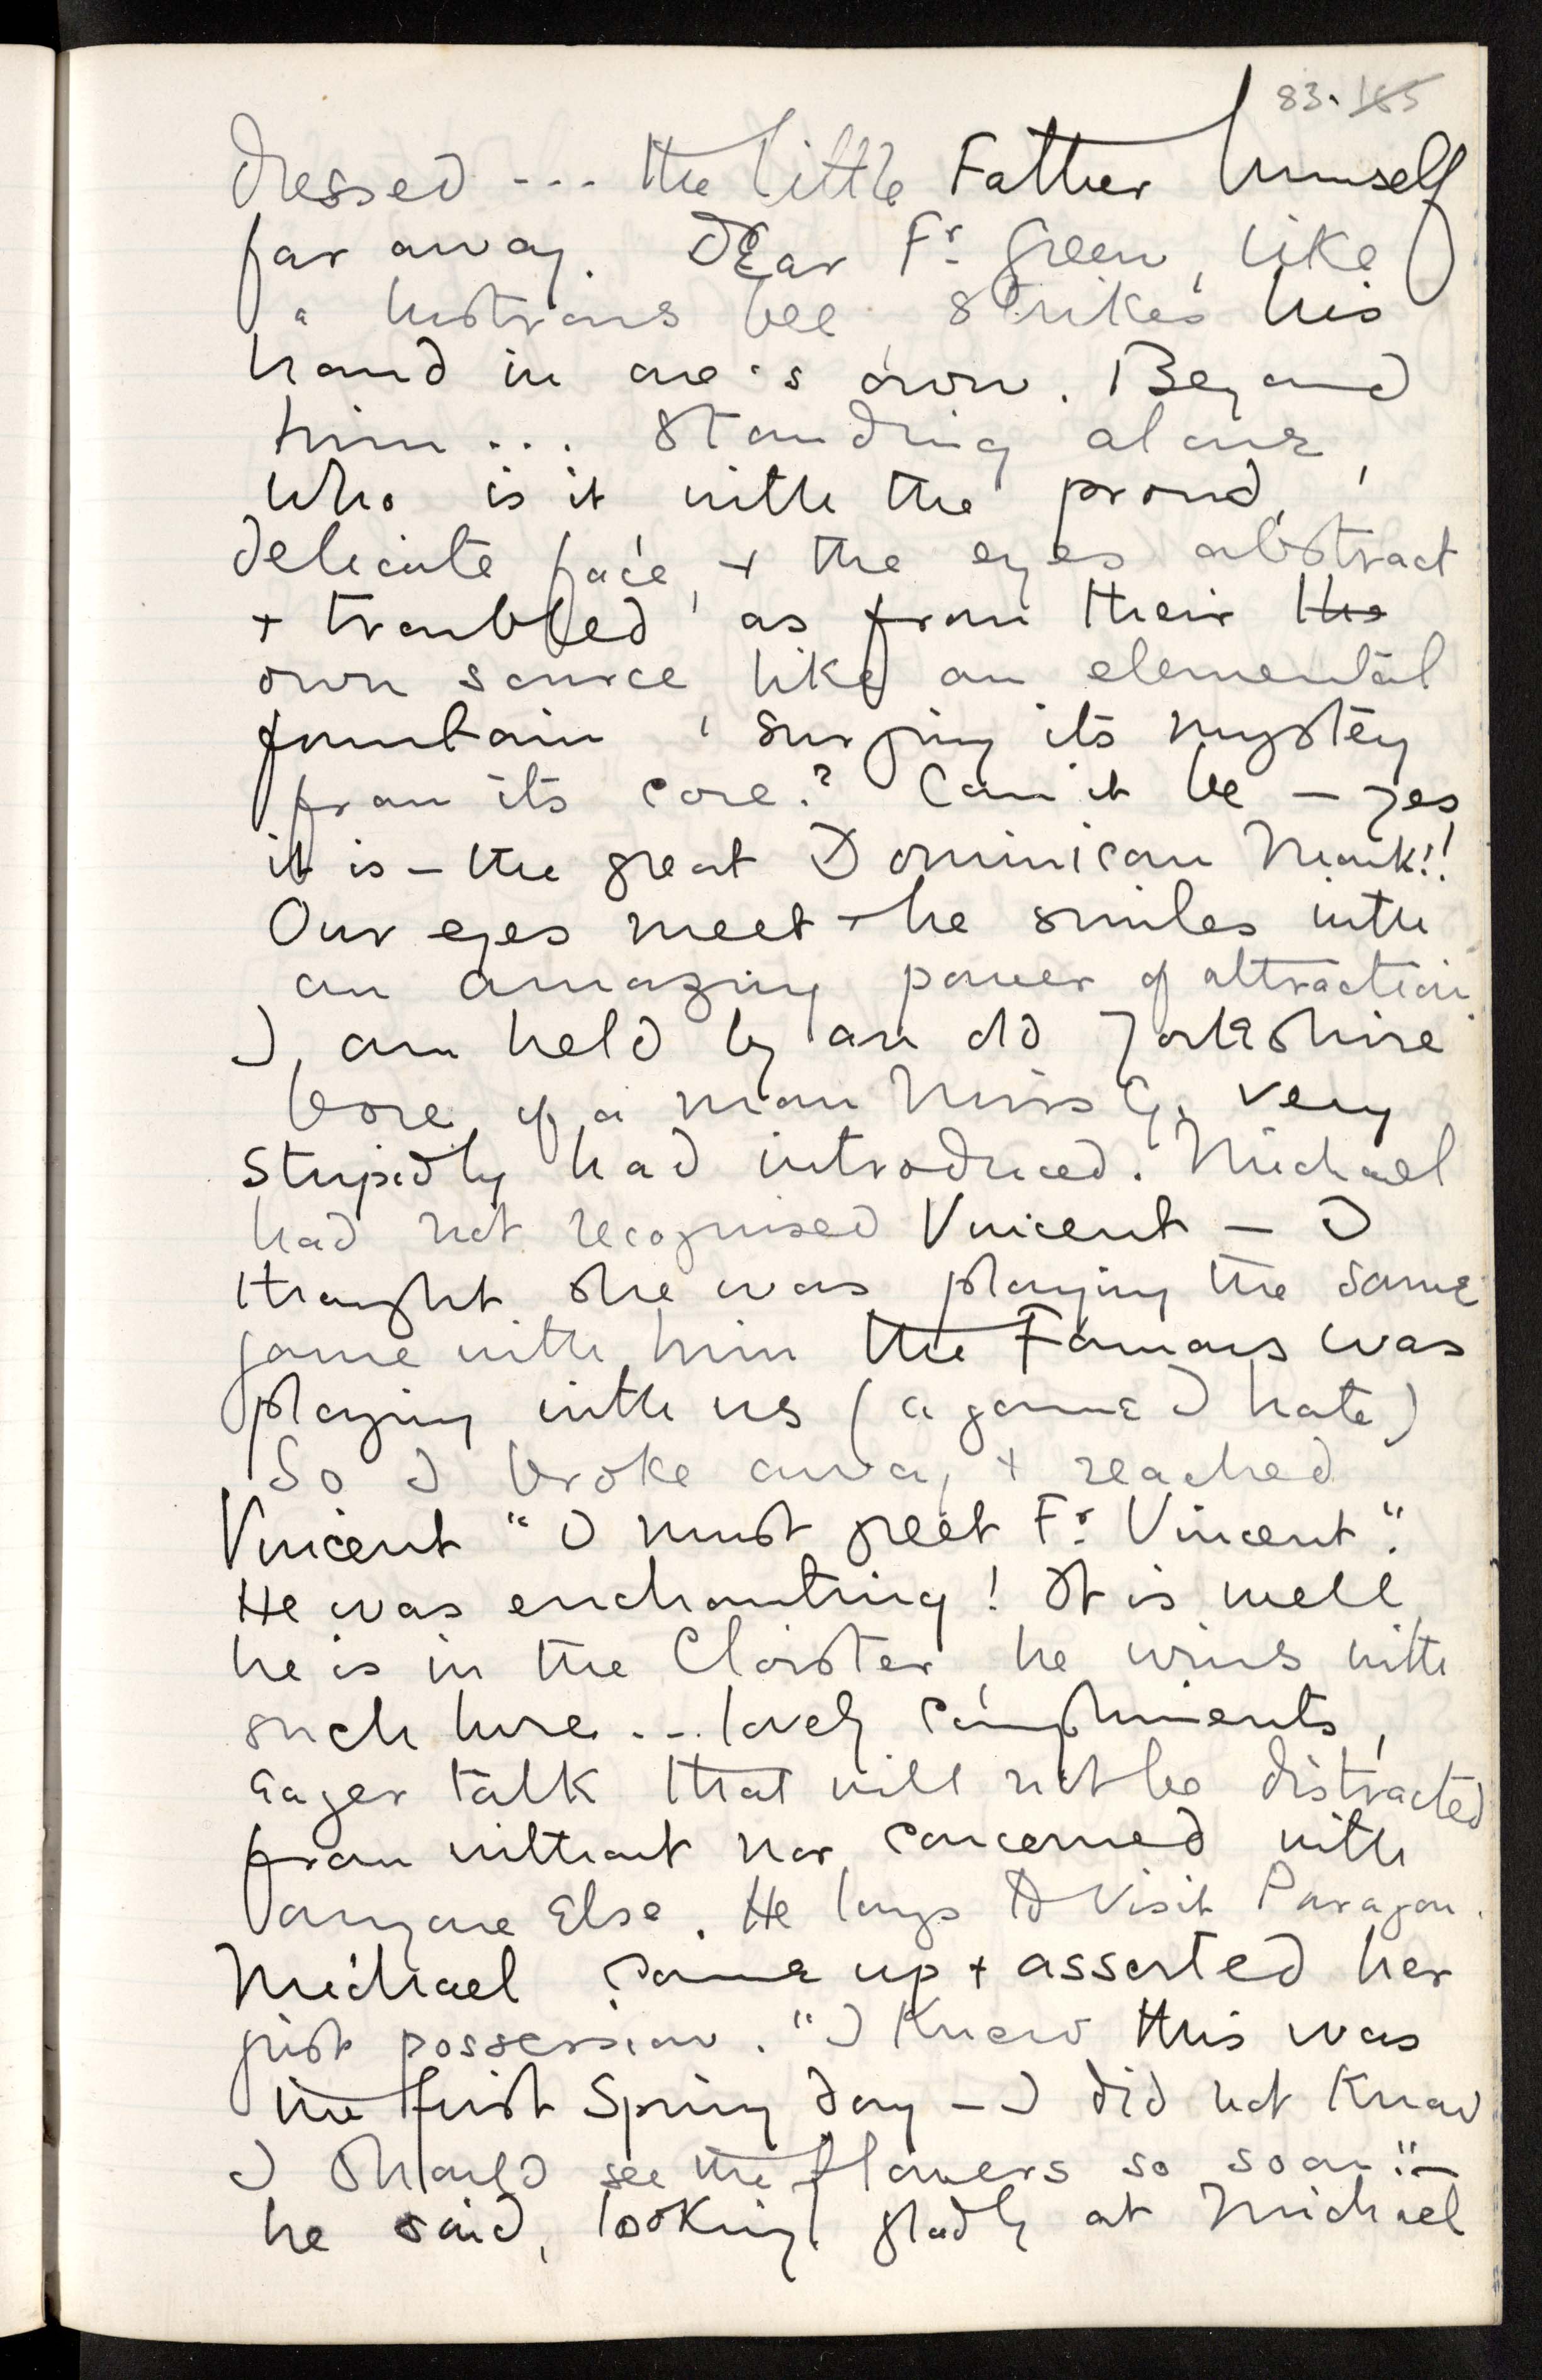 83. 165
dressed --- the little Father himself
far away. Dear Fr. Green, like
a lustrous bee strikes his
hand in one's own. Beyond
him... standing alone,
who is it with the proud,
delicate face, + the eyes abstract
+ troubled as from their the
own source like an elemental
fountain, surging its mystery
from its core? Can it be — yes
it is — the great Dominican Monk!!
Our eyes meet + he smiles with
an amazing power of attraction.
I am held by an old Yorkshire
bore of a man Miss G. very
stupidly had introduced. Michael
had not recognised Vincent — I
thought she was playing the same
game with him the Famous was
playing with us (a game I hate)
So I broke away + reached
Vincent "I must greet Fr. Vincent".
He was enchanting! It is well
he is in the Cloister, he wins with
such lure... lovely compliments,
eager talk that will not be distracted
from without nor concerned with
anyone Else. He longs to visit Paragon.
Michael came up + asserted her
just possession. "I knew this was
the first Spring day — I did not know
I should see the flowers so soon" —
he said, looking gladly at Michael